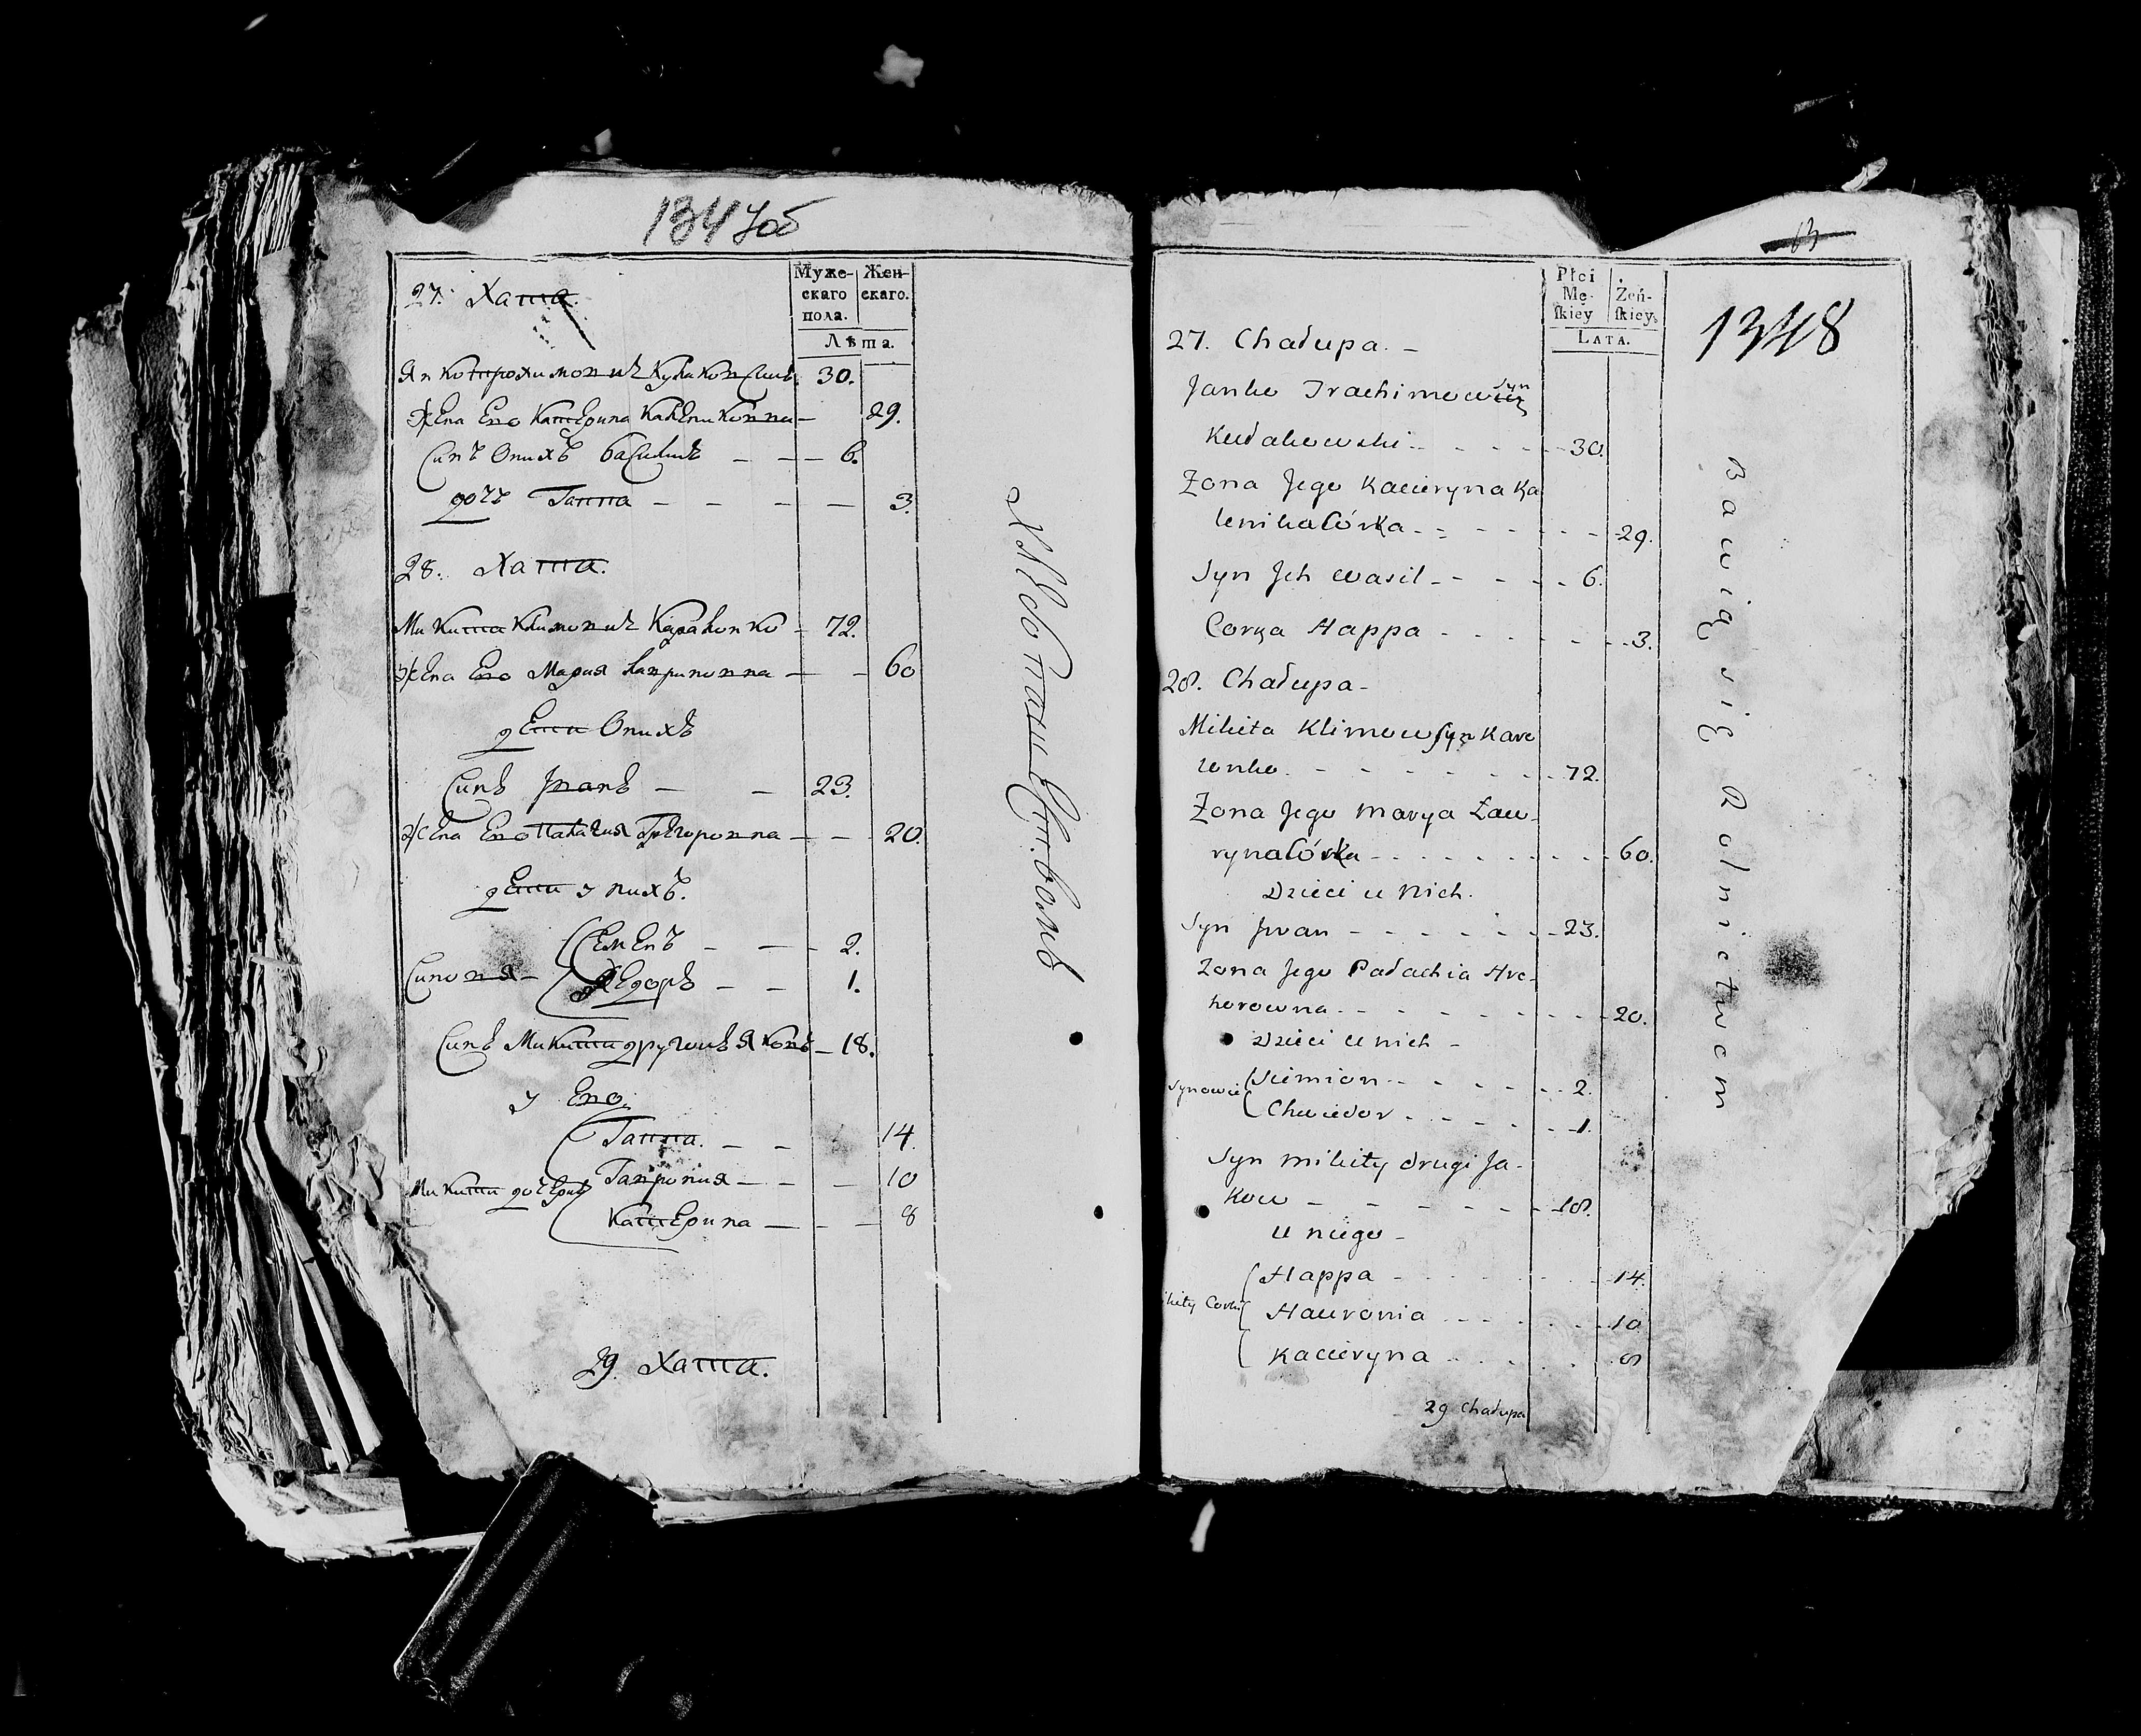 1347об
Муже-
скаго
пола.
Жен-
скаго.
Лѣта.
27. Хата.
Янко Трохимовичъ Кулаковский 30.
жена Его Катерина Калениковна — 29.
Синъ Онихъ Василь — — — 6.
дочъ Ганна — — — — 3.
28. Хата.
Микита Климовичъ Караленко — 72.
жена Его Мария Лавриновна — — 60
дети Онихъ
Синъ Иванъ — — 23.
жена Его Палагия Грегоровна — — 20.
дети у нихъ.
Синовя — Семенъ — — 2.
Хведоръ — — 1.
Синъ Микити другий Яковъ — 18.
у Его
Ганна. — — 14.
Микити дочери Гапрония — — — 10
Катерина — — — 8
29. Хата.
13
1348
Płci
Mę-
ſkiey
Żeń-
ſkiey.
LATA.
27. Chałupa. –
Janko Trachimow Syn
Kułakowski - - - - - 30.
Zona Jego Kacieryna Ka
lenikaCórka - - - - - 29.
Syn Jch Wasil - - - - 6.
Corka Hanna - - - - - 3.
28. Chałupa -
Mikita Klimow Syn Kara
lenko. - - - - - - 72.
Zona Jego Marya Ław-
rynaCórka - - - - - - 60.
Dzieci u Nich.
Syn Jwan - - - - - - 23.
Zona Jego Pałachia Hre-
horowna - - - - - - 20.
Dzieci u nich -
Synowie Siemion - - - - - 2.
Chwiedor - - - - - 1.
Syn Mikity drugi Ja-
kow - - - - - - 18.
u niego -
Hanna - - - - - 14.
ikity Corki Hawronia - - - - - 10
Kacieryna - - - - - 8
29 Chałupa
Bawią się Rolnictwem